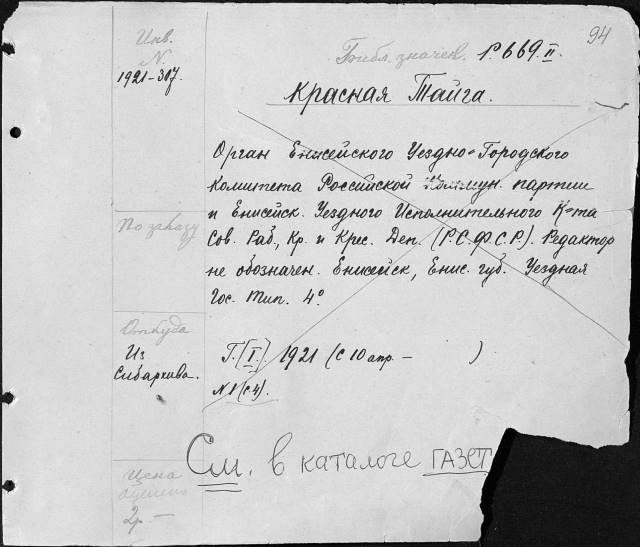 94
Инв.
N.
1921-307.
Библ. значен. P.669.II.
Красная Тайга.
Орган Енисейского Уездно-Городского
Комитета Российской Коммун. партии
и Енисейск. Уездного Исполнительного К-та
Сов. Раб., Кр. и Крес. Деп. (Р.С.Ф.С.Р.). Редактор
не обозначен. Енисейск, Енис. губ. Уездная
Гос. тип. 4°
По заказу
Откуда
Из
Сибархива.
Г. [I.] 1921 (с 10 апр. — )
N 1 (с 4).
См. в каталоге ГАЗЕТ
Цена
2р —